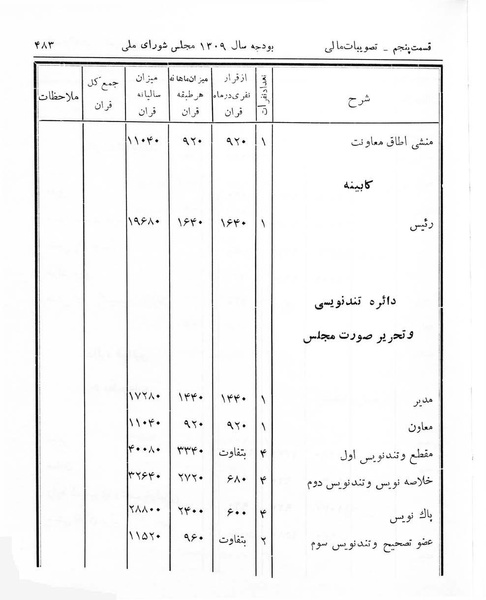 قسمت پنجم ـ تصویبات مالی بودجه سال ۱۳۰۹ مجلس شورای ملی ۴۸۳
شرح تعداد نفرات از قرار نفری در ماه قران میزان ماهانه هر طبقه قران میزان سالیانه قران جمع کل قران ملاحظات
منشی اطاق معاونت ۱ ۹۲۰ ۹۲۰ ۱۱۰۴۰
کابینه
رئیس ۱ ۱۶۴۰ ۱۶۴۰ ۱۹۶۸۰
دائره تندنویسی
و تحریر صورت مجلس
مدیر ۱ ۱۴۴۰ ۱۴۴۰ ۱۷۲۸۰
معاون ۱ ۹۲۰ ۹۲۰ ۱۱۰۴۰
مقطع و تندنویس اول ۴ بتفاوت ۳۳۴۰ ۴۰۰۸۰
خلاصه نویس و تندنویس دوم ۴ ۶۸۰ ۲۷۲۰ ۳۲۶۴۰
پاك نویس ۴ ۶۰۰ ۲۴۰۰ ۲۸۸۰۰
عضو تصحیح و تندنویس سوم ۲ بتفاوت ۹۶۰ ۱۱۵۲۰